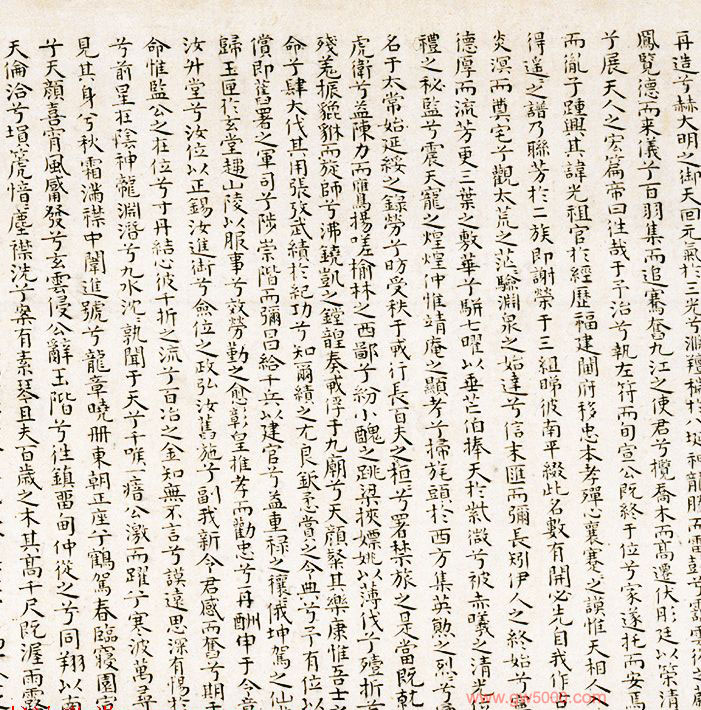 再造兮赫大明之御天回元氣於三光兮
鳳覽德而来儀兮百羽集而追騫奮九江之使君兮攬喬木而高遷伏彤廷以策清
兮展天人之宏篇帝曰往哉于予治兮執左符而旬宣公既終于位兮家遂托而安焉
而胤子踵興其諱光祖官於經歷福建閫府移忠本孝殫心襄蹇之謨惟天相人
得遥之譜乃聯芳於二族即謝榮于三組睇彼南平綴此名數有開必先自我作
炎溟而奠宅兮觀太荒之茫驗淵泉之始達兮信末匯而彌長矧伊人之終始兮
德厚而流芳更三葉之敷華兮駢七曜以垂芒伯捧天於紫微兮被赤曦之清
禮之秘監兮震天寵之煌煌仲惟靖庵之顯考兮掃旄頭於西方集英勲之烈兮
名于太常始延綏之錄勞兮昉受秩于戎行長百夫之桓兮署禁旅之是當既乾
虎衛兮益陳力而鷹揚嗟榆林之西鄙兮紛小醜之跳梁挾嫖姚以薄伐兮殪折
殘羗振貔貅而旋師兮沸鐃凱之鏜鍠奏戎俘于九廟兮天顔繄其樂康惟吾士
命兮肆大伐其用張攷武績於紀功兮知爾績之尤良欽懋賞之今典兮予有位以
償即舊署之軍司兮陟崇階而彌昌給千兵以建官兮益重禄之穰俄坤駕之仙
歸玉匣於玄堂趨山陵以服事兮效勞勤之愈彰皇推孝而勸忠兮丹酬申于令
汝升堂兮汝位以正錫汝進銜兮僉位之政弘汝舊施兮副我新令君感而奮兮期于
命惟監公之在位兮寸丹結心彼千折之流兮百冶之金知無不言兮謨遠思深有惕於
兮前星在陰神龍淵潜兮九水沈孰聞于天兮千喉一瘖公激而躍兮寒波萬尋
見其身兮秋霜滿襟中闈進號兮龍章曉册東朝正座兮鶴駕春臨寢園
兮天顔喜宵風屬發兮玄雲侵公辭玉階兮往鎮畱甸仲從之兮同翔以南
天倫洽兮塤篪愔塵襟洗兮案有素琴且夫百歲之木其髙千尺既渥雨露
www.qw5000.com